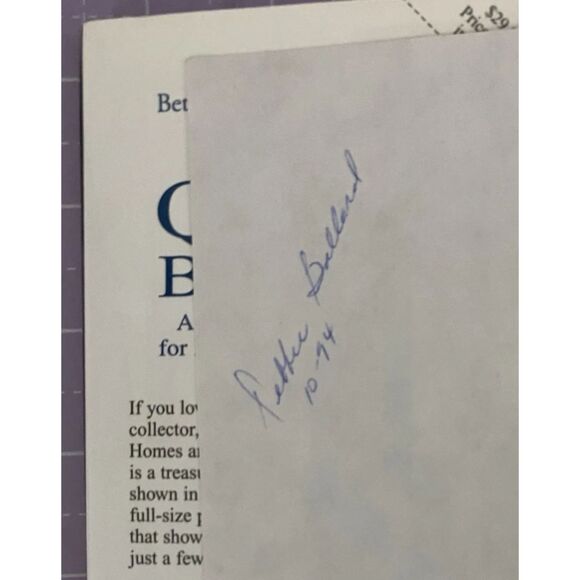 $29
Pric
Bet
B
A
for
If you lov
collector,
Homes a
is a treasu
shown in
full-size p
that show
just a few
Debbie Ballard
10-94